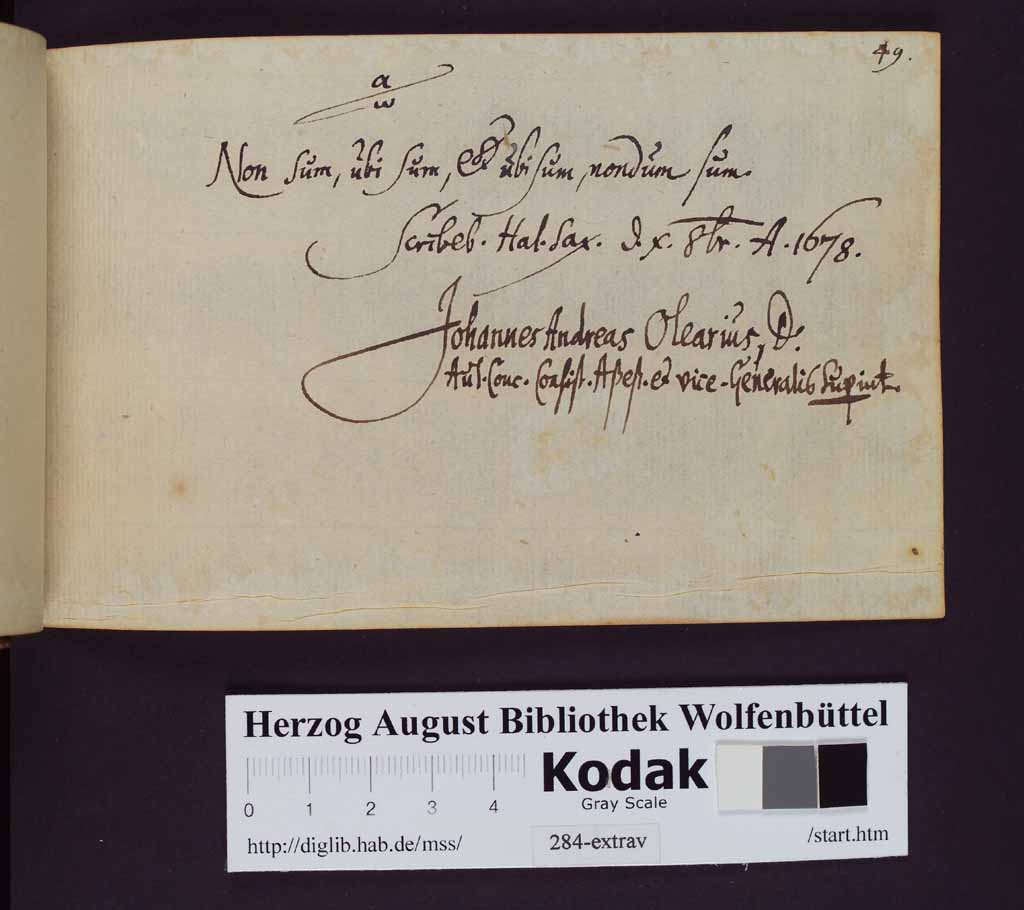 49.
α
ω
Non sum, ubi sum, & ubi sum, nondum sum.
Scribeb. Hal. Sax. d. x. 8br. A. 1678.
Johannes Andreas Olearius, D.
Aul. Conc. Consist. Assess. et vice-Generalis Superint.
Herzog August Bibliothek Wolfenbüttel
0 1 2 3 4
Kodak
Gray Scale
http://diglib.hab.de/mss/ 284-extrav /start.htm